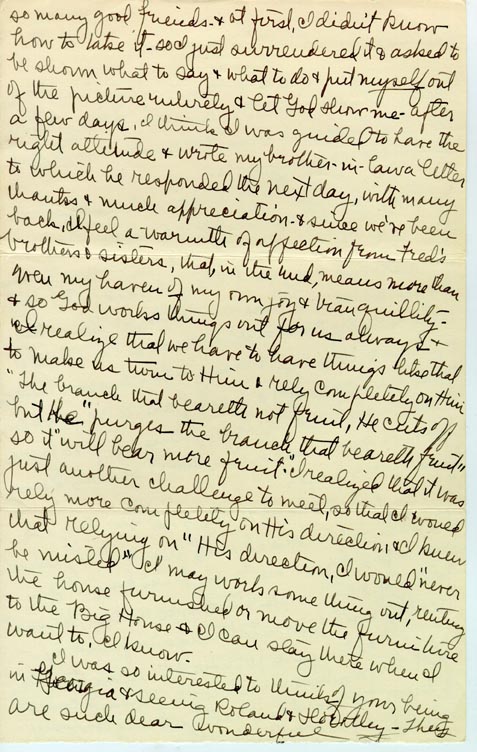 so many good friends - & at first, I didn't know
how to take it - so I just surrendered it & asked to
be shown what to say & what to do & put myself out
of the picture entirely & let God show me - after
a few days, I think I was guided to have the
right attitude & wrote my brother-in-law a letter
to which he responded the next day, with many
thanks & much appreciation - & since we've been
back, I feel a warmth of affection from Fred's
brothers & sisters, that, in the end, means more than
even my haven of my own joy & tranquillity -
& so God works things out for us always &
I realize that we have to have things like that
to make us turn to Him & rely completely on Him
"The branch that beareth not fruit, He cuts off
but He "purges the branch that beareth fruit"
so it "will bear more fruit." I realized that it was
just another challenge to meet, so that I would
rely more completely on His direction & I knew
that relying on "His direction, I would "never
be misled" I may work some thing out, renting
the house furnished or move the furniture
to the Big House & I can stay there when I
want to, I know.
I was so interested to think of your being
in Georgia & seeing Roland & - They
are such dear wonderful